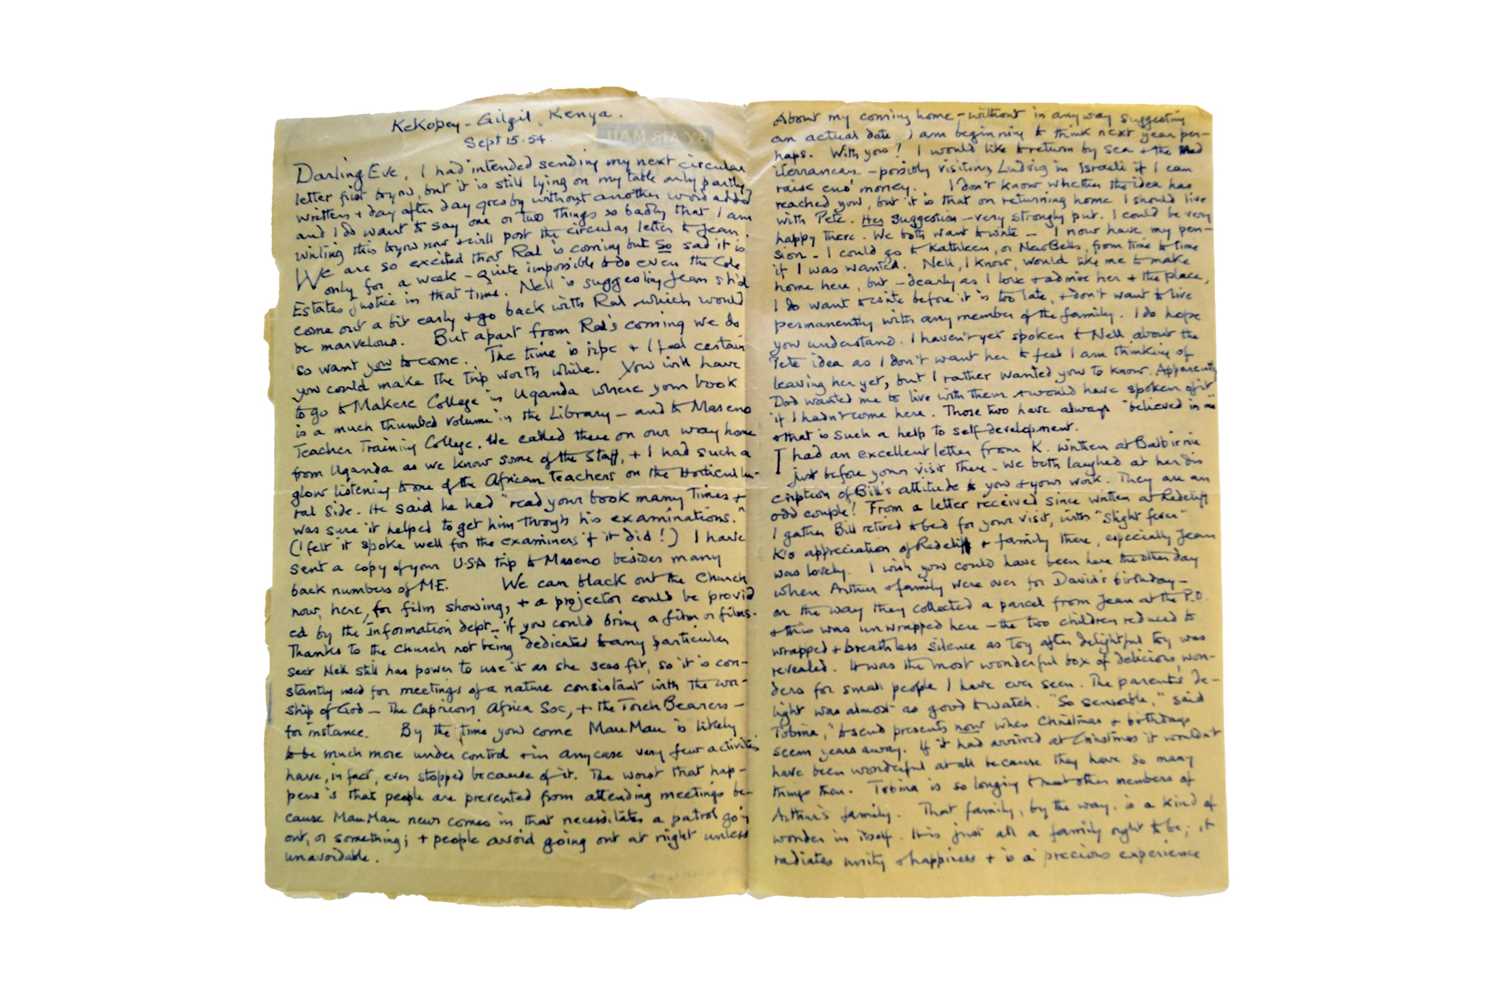 KeKopey - Gilgil, Kenya.
Sept 15. 54.
Darling Eve, I had intended sending my next circular
letter first to you, but it is still lying on my table only partly
written + day after day goes by without another word added
and I do want to say one or two things so badly that I am
writing this to you now + will post the circular letter to Jean.
We are so excited that Ral is coming but so sad it is
only for a week - quite impossible to do even the Cole
Estates justice in that time. Nell is suggesting Jean sh'd
come out a bit early + go back with Ral which would
be marvelous. But apart from Ral's coming we do
so want you to come. The time is ripe + I feel certain
you could make the trip worth while. You will have
to go to Makere College in Uganda where your book
is a much thumbed volume in the Library - and to Maseno
Teacher Training College. We called there on our way home
from Uganda as we know some of the staff, + I had such a
glow listening to one of the African Teachers on the Horticultu-
ral side. He said he had "read your book many times +
was sure it helped to get him through his examinations."
(I felt it spoke well for the examiners if it did!) I have
sent a copy of your USA trip to Maseno besides many
back numbers of ME. We can black out the Church
now, here, for film showing, + a projector could be provid
ed by the Information dept - if you could bring a film or films.
Thanks to the Church not being dedicated to any particular
sect Nell still has power to use it as she sees fit, so it is con-
stantly used for meetings of a nature consistant with the wor-
ship of God - The Capricorn Africa Soc, + the Torch Bearers -
for instance. By the time you come MauMau is likely
to be much more under control + in any case very few activities
have, in fact, ever stopped because of it. The worst that hap-
pens is that people are prevented from attending meetings be-
cause MauMau news comes in that necessitates a patrol goin
out, or something; + people avoid going out at night unless
unavoidable.
About my coming home - without in any way suggesting
an actual date, I am beginning to think next year per-
haps. With you! I would like to return by sea + the Med
iterranean - possibly visiting Ludwig in Israeli if I can
raise eno' money. I don't know whether the idea has
reached you, but it is that on returning home I should live
with Pete. Her suggestion - very strongly put. I could be very
happy there. We both want to write - I now have my pen-
sion - I could go to Kathleen, or NewBells, from time to time
if I was wanted. Nell, I know, would like me to make
home here, but - dearly as I love + admire her + the place,
I do want to write before it is too late, + don't want to live
permanently with any member of the family. I do hope
you understand. I haven't yet spoken to Nell about the
Pete idea as I don't want her to feel I am thinking of
leaving her yet, but I rather wanted you to know. Apparently
Dod wanted me to live with them + would have spoken of it
if I hadn't come here. Those two have always "believed in me"
+ that is such a help to self-development.
I had an excellent letter from K. written at Balbirnie
just before your visit there. We both laughed at her dis
cription of Bill's attitude to you + your work. They are an
odd couple! From a letter received since written at Redcliff
I gather Bill retired to bed for your visit, with "slight fever"
K's appreciation of Redcliff + family there, especially Jean
was lovely. I wish you could have been here the other day
when Arthur + family were over for David's birthday -
on the way they collected a parcel from Jean at the P.O.
+ this was unwrapped here - the two children reduced to
wrapped + breathless silence as toy after delightful toy was
revealed. It was the most wonderful box of delicious won-
ders for small people I have ever seen. The parents' de-
light was almost as good to watch. "So sensible," said
Tobina, "to send presents now when Christmas + birthdays
seem years away. If it had arrived at Christmas it wouldn't
have been wonderful at all because they have so many
things then. Tobina is so longing to meet other members of
Arthur's family. That family, by the way, is a kind of
wonder in itself. It is just all a family ought to be; it
radiates unity + happiness + is a precious experience